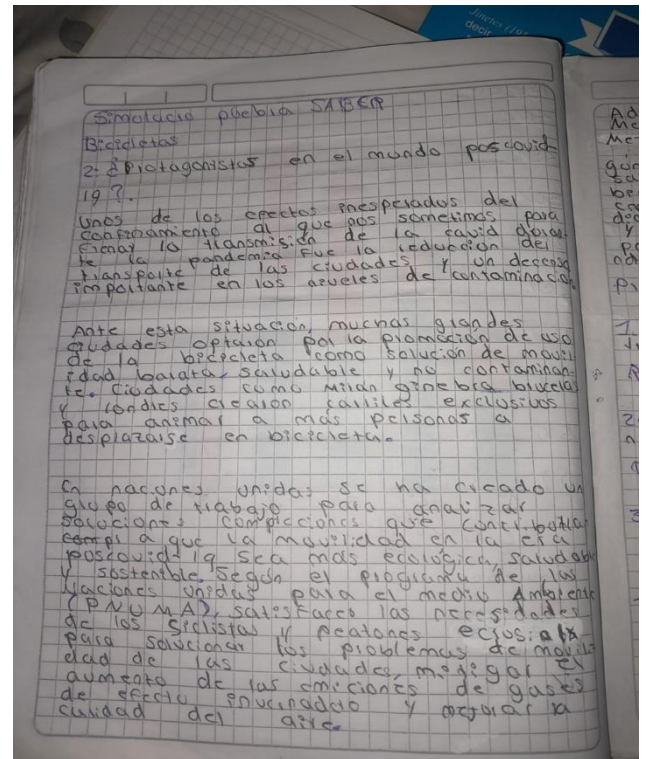 Jinetes
decir
Simulacro prueba SABER
Bicicletas
2. ¿Protagonistas en el mundo poscovid
19?.
Unos de los efectos inesperados del
confinamiento al que nos sometimos para
frenar la transmisión de la covid duran
te la pandemia fue la reducción del
transporte de las ciudades y un descenso
importante en los niveles de contaminación
Ante esta situación, muchas grandes
ciudades optaron por la promoción de uso
de la bicicleta como solución de movil
idad barata, saludable y no contaminan
te. Ciudades como milán ginebra bruselas
y londres crearon carriles exclusivos
para animar a más personas a
desplazarse en bicicleta.
En naciones unidas se ha creado un
grupo de trabajo para analizar
soluciones que
a que la movilidad en la era
poscovid-19 sea más ecológica, saludabl
y sostenible. Según el programa de las
Naciones unidas para el medio Ambiente
(PNUMA), satisfacer las necesidades
de los siclistas y peatones
para solucionar los problemas de movili
dad de las ciudades, mitigar el
aumento de las emiciones de gases
de efecto y mejorar la
culidad del aire.